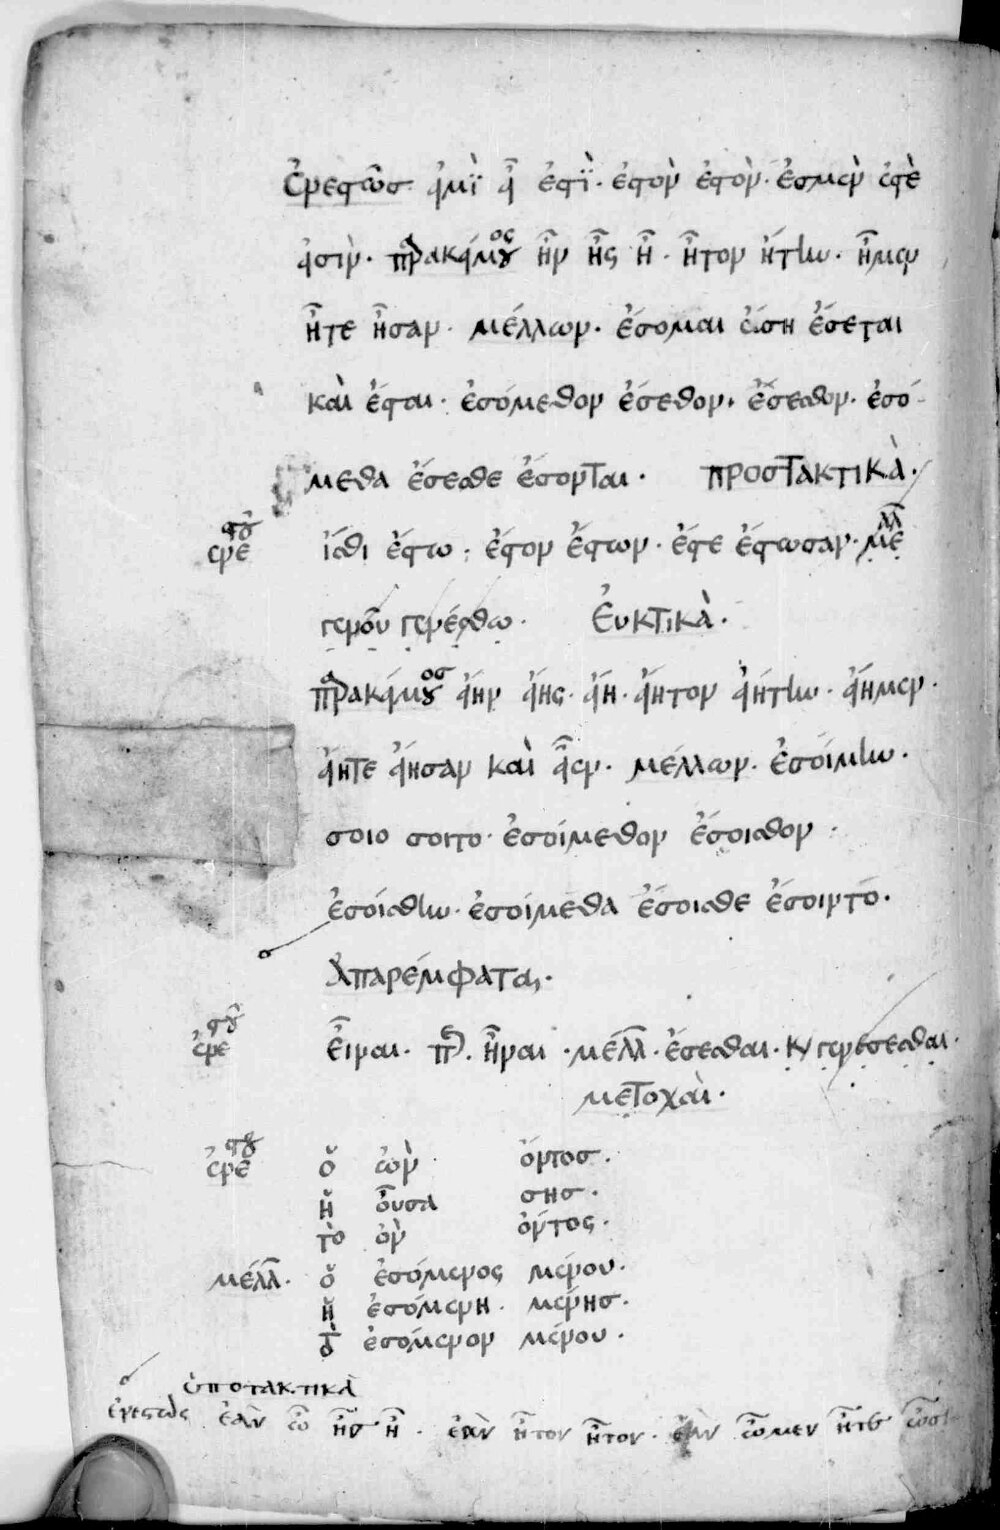 Ἐνεστῶσ. εἰμῒ εἶ ἐστῒ. ἐστὸν ἐστὸν. ἐσμὲν ἐστὲ
εἰσὶν. παρακείμενος ἦν ἦς ἦ. ἦτον ἤτην. ἦμεν
ἦτε ἦσαν. μέλλων. ἔσομαι ἔση ἔσεται
καὶ ἔσται. ἐσόμεθον ἔσεθον. ἔσεσθον. ἐσό-
μεθα ἔσεσθε ἔσονται. προστακτικὰ.
ἐνε στῶ ἴσθι ἔστω. ἔστον ἔστων. ἔστε ἔστωσαν. μέλλ
γενοῦ γενέσθω. Ἐυκτικὰ.
παρακείμενος εἴην εἴης. εἴη. εἴητον εἰήτην. εἴημεν.
εἴητε εἴησαν καὶ εἶεν. μέλλων. ἐσοίμην.
σοιο σοιτο. ἐσοίμεθον ἔσοισθον.
ἐσοίσθην. ἐσοίμεθα ἔσοισθε ἔσοιντό.
Ἀπαρέμφατα.
ἐνε στῶ εἶναι. πρ. ἦναι. μέλλ. ἔσεσθαι. κ γενέσεσθαι.
μετοχαὶ.
ἐνε στῶ ὁ ὢν ὄντοσ.
ἡ οὖσα σησ.
τὸ ὂν ὄντος.
μέλλ. ὁ ἐσόμενος μένου.
ἡ ἐσόμενη. μένησ.
τὸ ἐσόμενον μένου.
ὑποτακτικὰ
ἐνεστὼς ἐὰν ὦ ᾖσ ᾖ. ἐὰν ἦτον ἦτον. ἐὰν ὦμεν ἦτε ὦσι